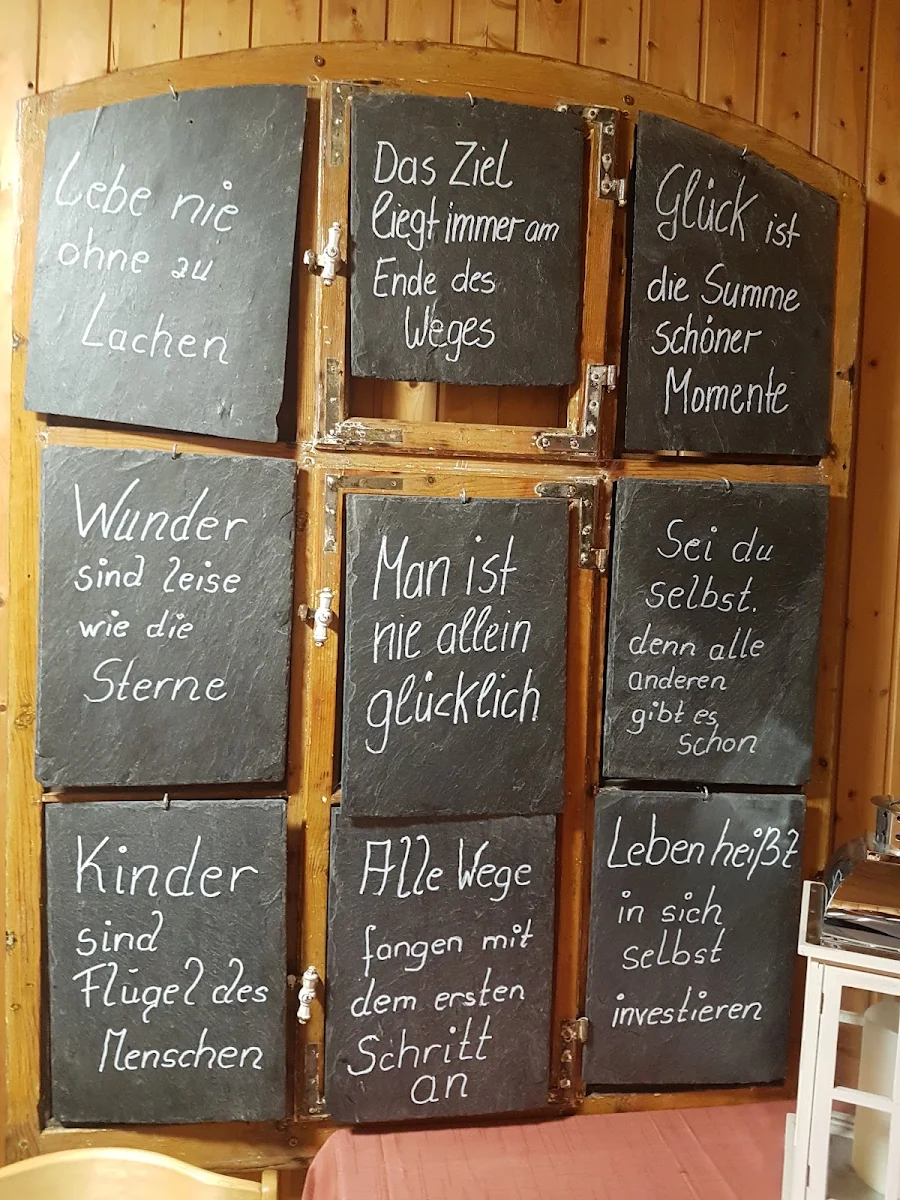 Lebe nie
ohne zu
Lachen
Das Ziel
liegt immer am
Ende des
Weges
Glück ist
die Summe
schöner
Momente
Wunder
sind leise
wie die
Sterne
Man ist
nie allein
glücklich
Sei du
selbst.
denn alle
anderen
gibt es
schon
Kinder
sind
Flügel des
Menschen
Alle Wege
fangen mit
dem ersten
Schritt
an
Leben heißt
in sich
selbst
investieren